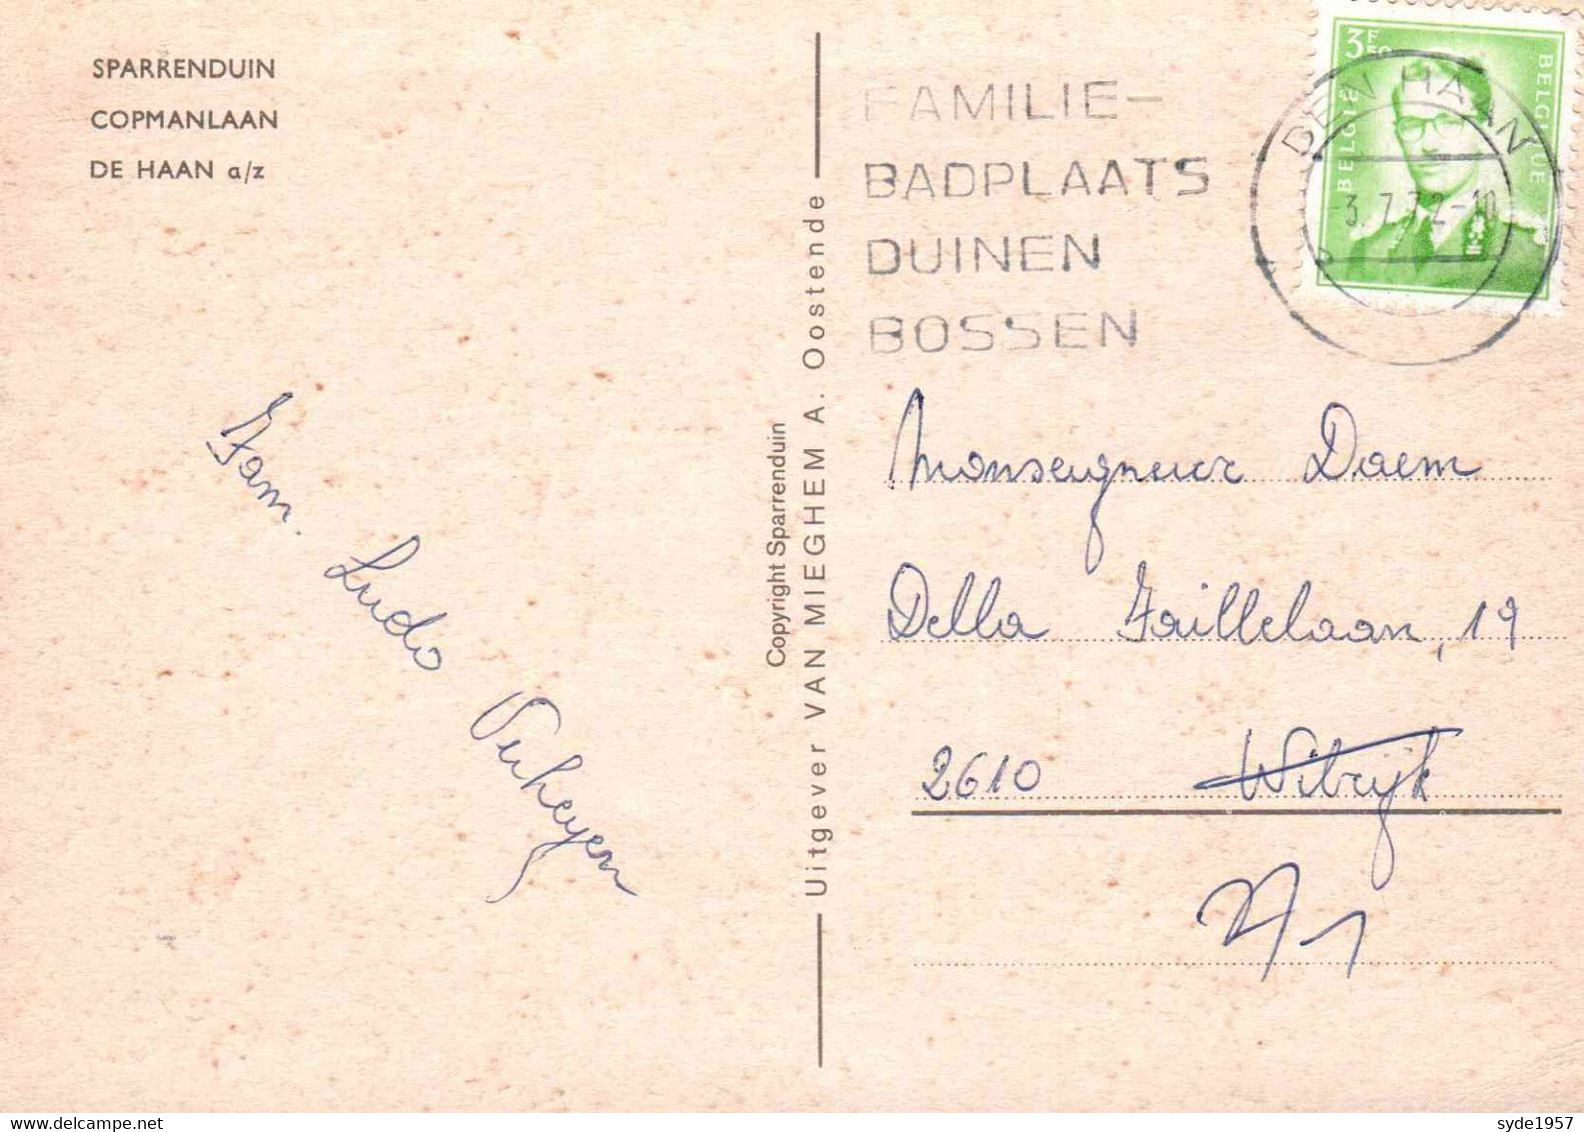 SPARRENDUIN
COPMANLAAN
DE HAAN a/z
Fam. Ludo Verheyen
Copyright Sparrenduin
Uitgever VAN MIEGHEM A. Oostende
FAMILIE-
BADPLAATS
DUINEN
BOSSEN
3F50
BELGIE
BELGIQUE
DEN HAAN
-3.7.72-10
Monseigneur Daem
Della Faillelaan, 19
2610 Wilrijk
syde1957